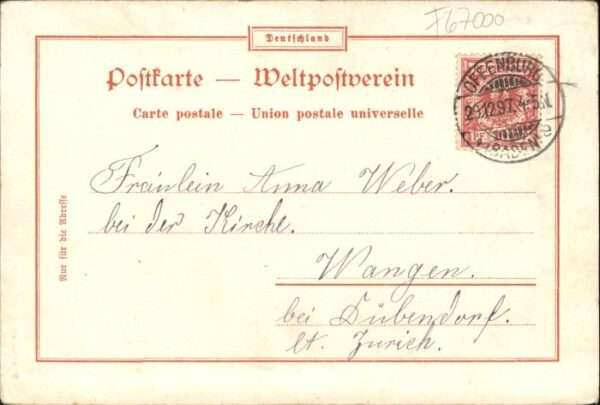 F67000
Deutschland
Postkarte — Weltpostverein
Carte postale — Union postale universelle
OFFENBURG
29.12.97. 4-5N.
(BADEN)
Nur für die Adresse
Fräulein Anna Weber.
bei der Kirche.
Wangen.
bei Dübendorf.
Ct. Zürich.